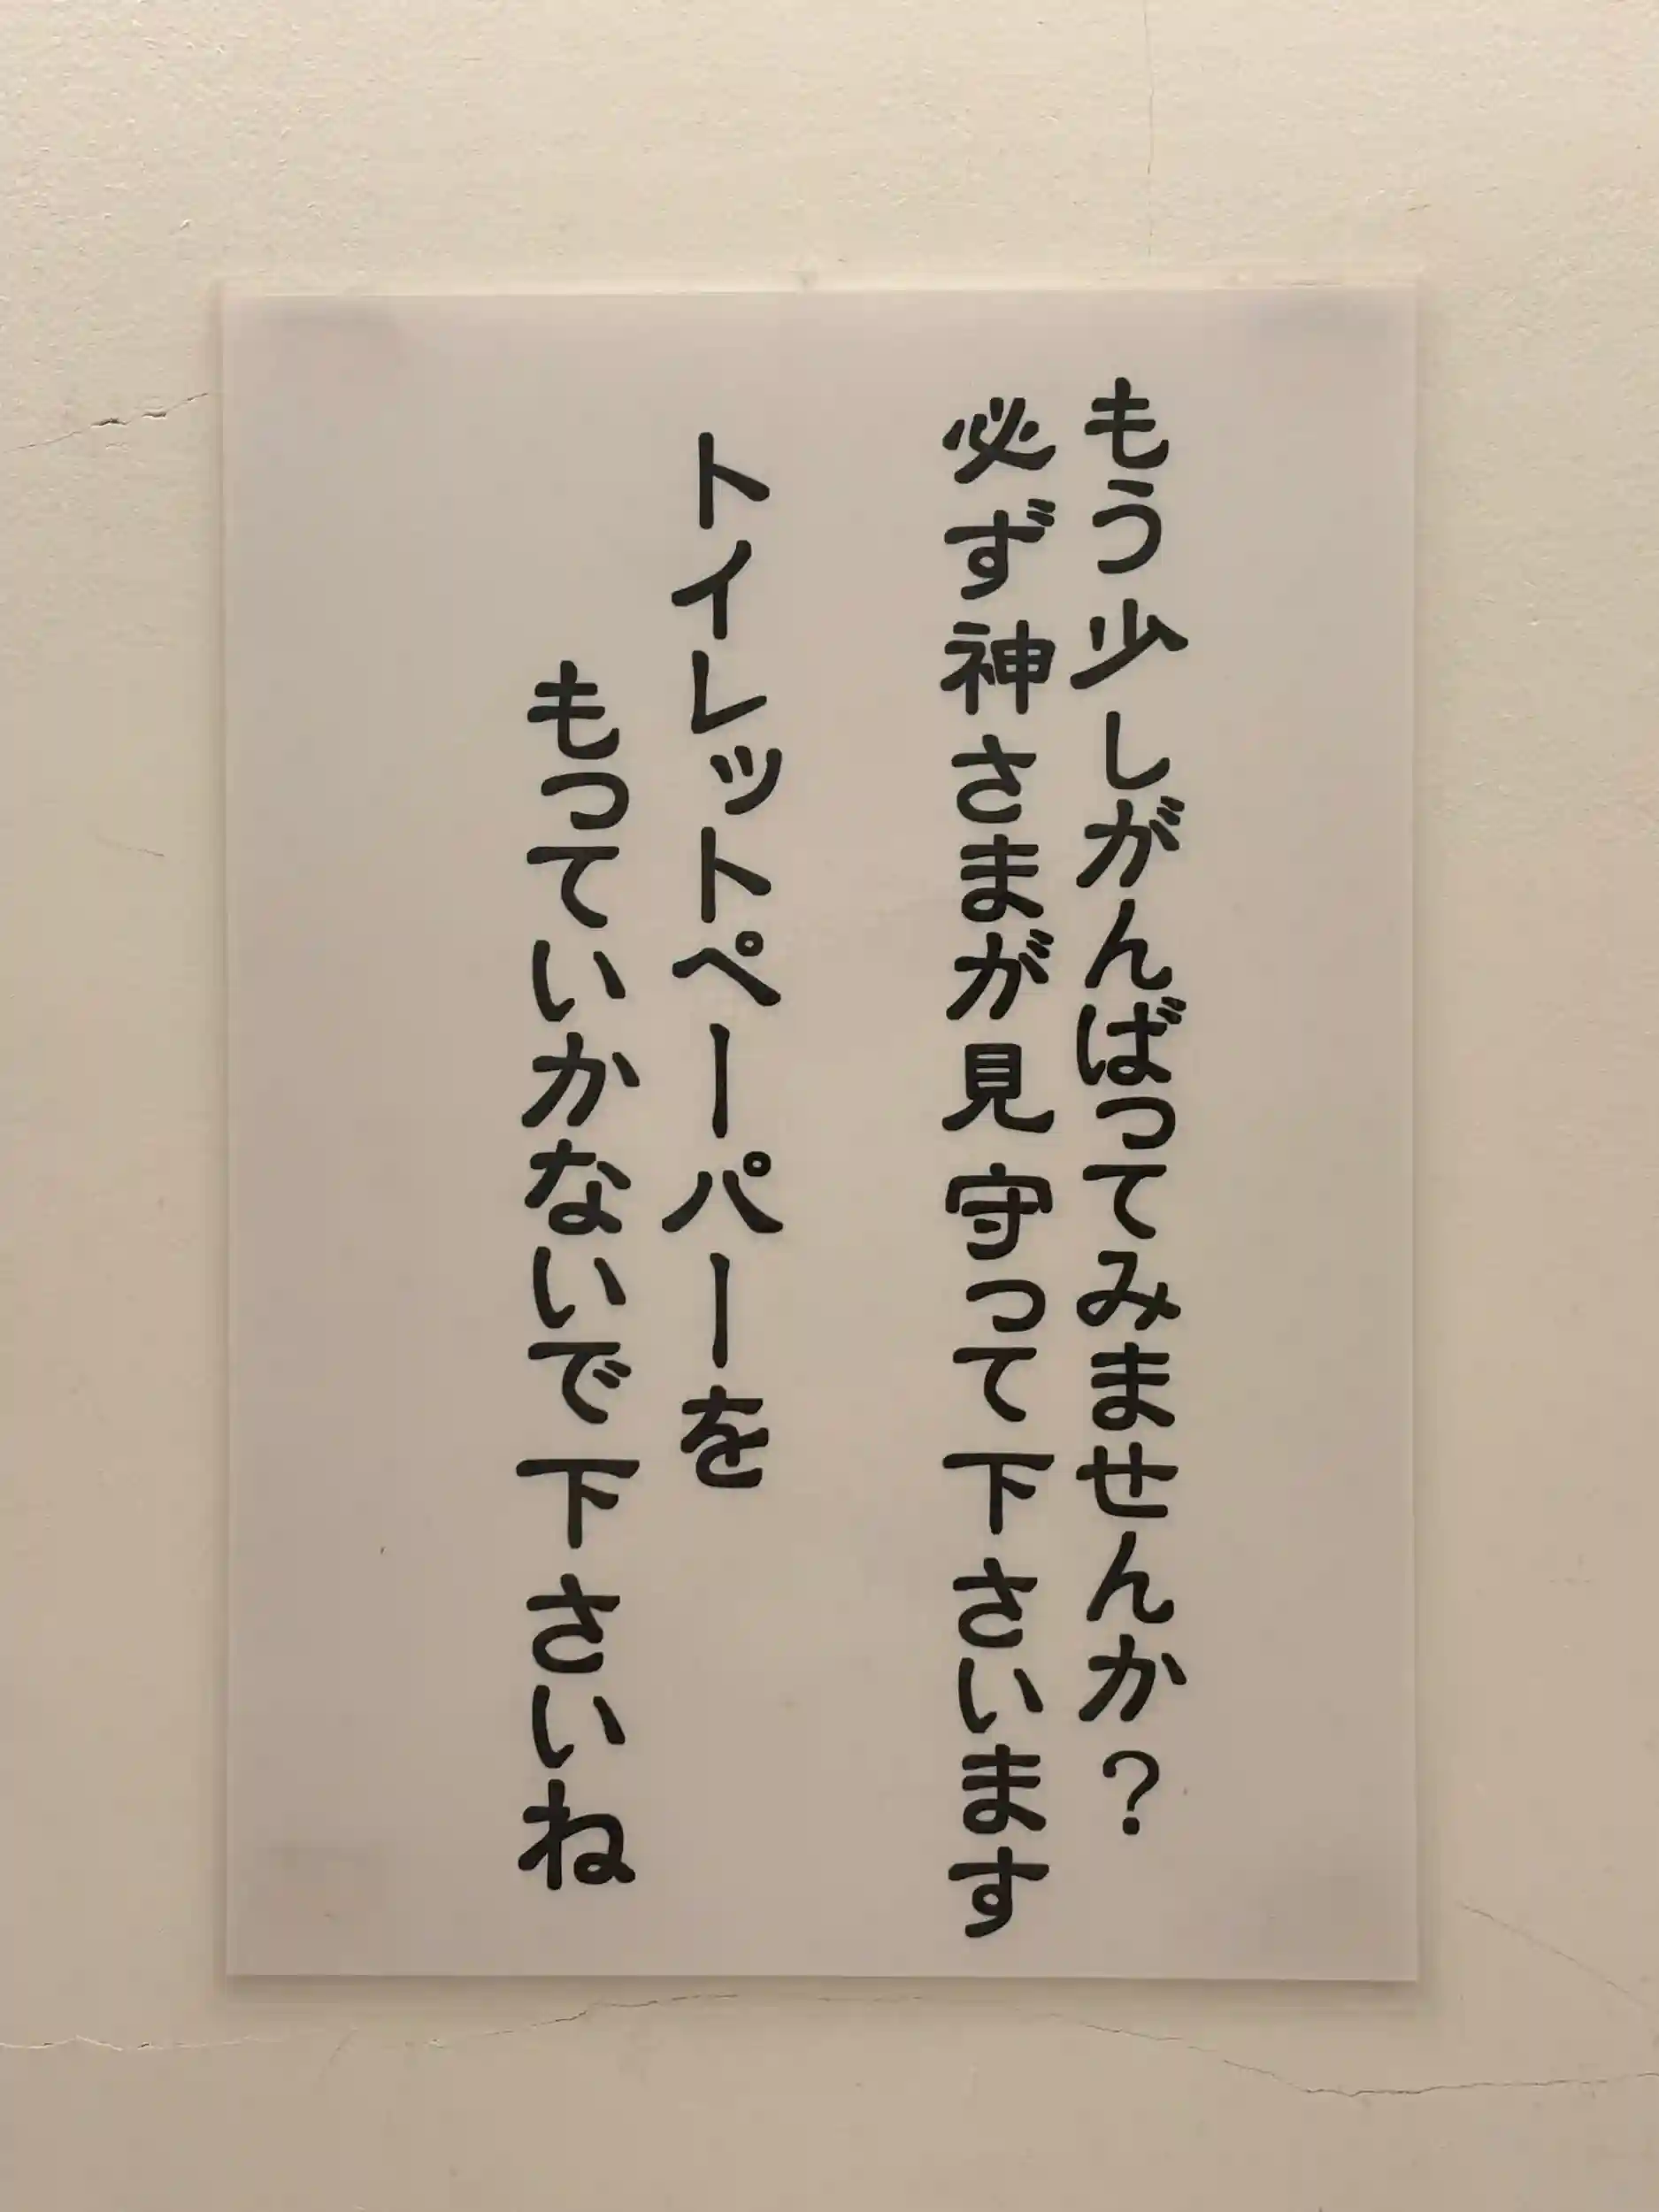 もう少しがんばってみませんか？
必ず神さまが見守って下さいます
トイレットペーパーを
もっていかないで下さいね